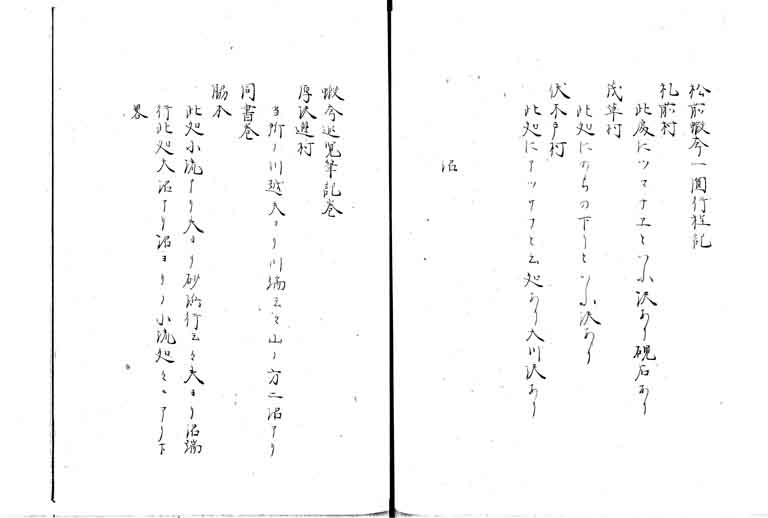 松前蝦夷一圓行程記
札前村
此処にツマナエといふ小沢あり硯石あり
茂草村
此処にのちの下りといふ小沢あり
伏木戸村
此処にアツサフと云処あり大川沢あり
沼
蝦夷巡覧筆記巻
厚沢辺村
当所ノ川越夫ヨリ川端云々山ノ方ニ沼アリ
同書巻
脇本
此処小流アリ夫ヨリ砂浜行云々夫ヨリ沼端
行此処大沼アリ沼ヨリノ小流処々ニアリ下
畧